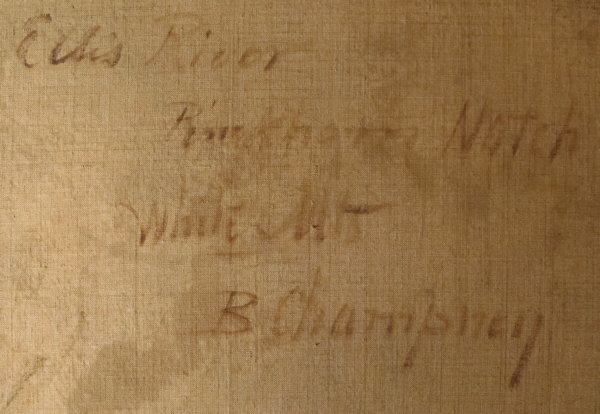 Ellis River
Pinkham Notch
White Mts
B Champney